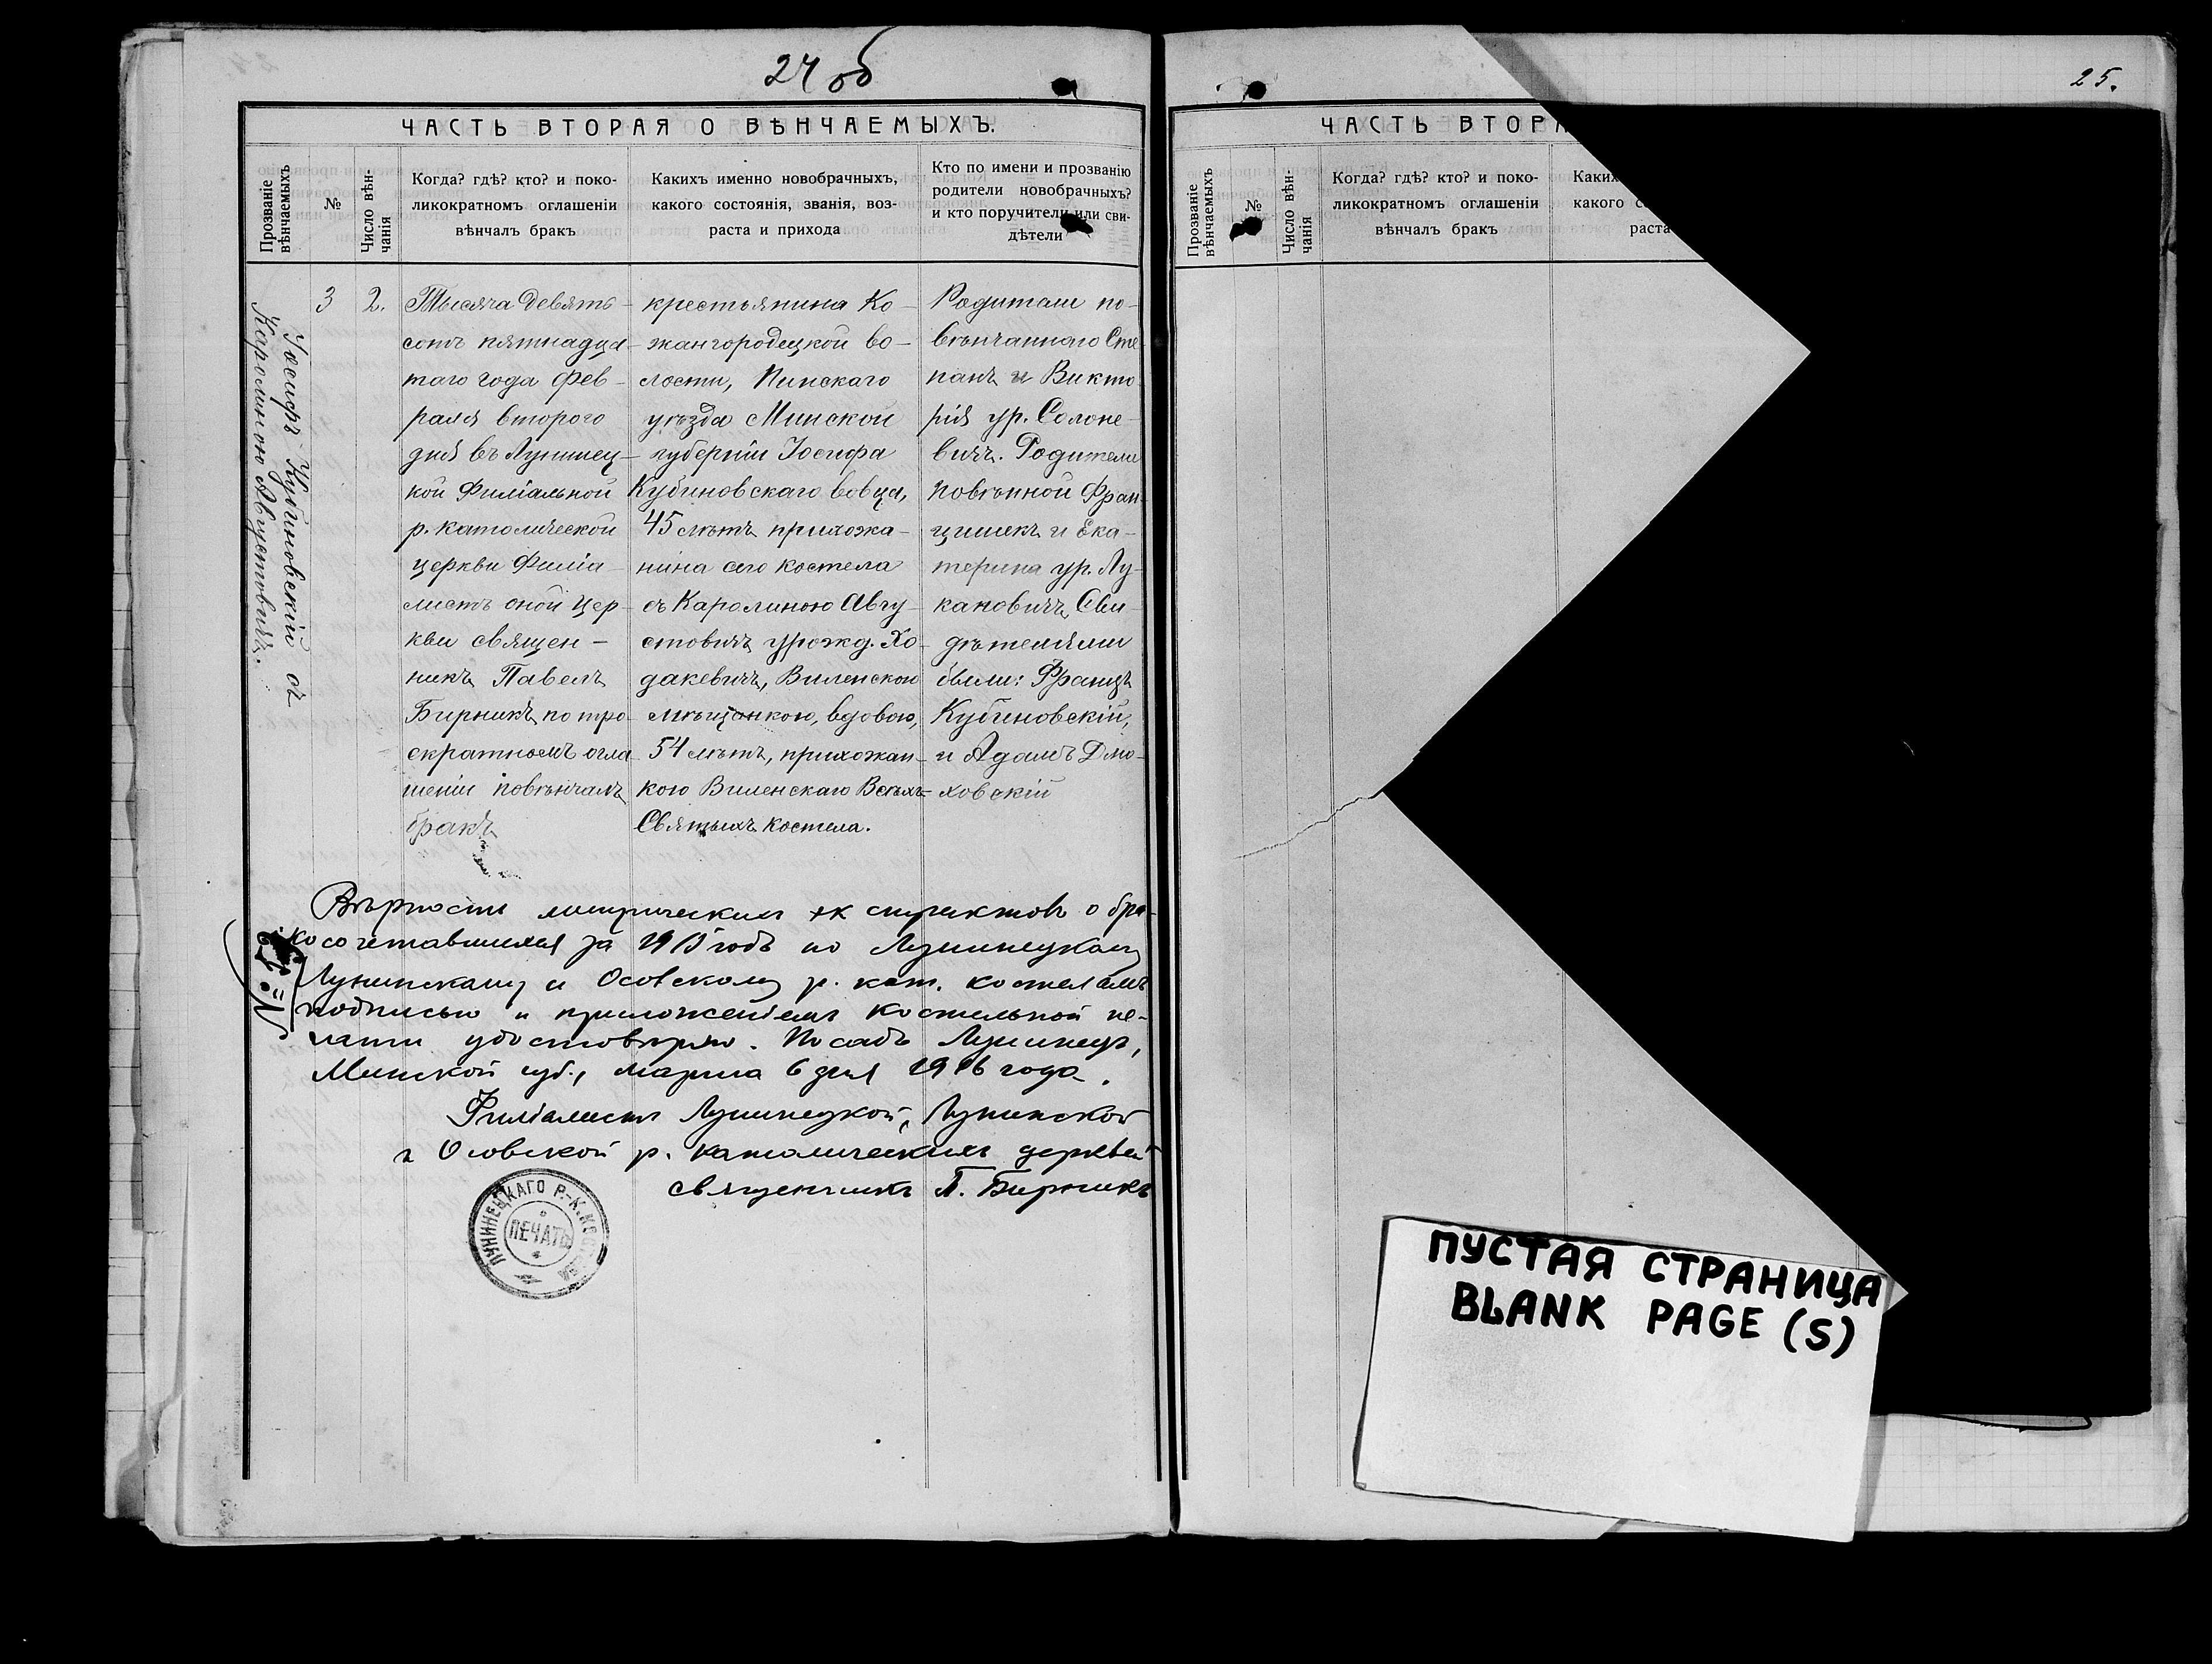 24 об
ЧАСТЬ ВТОРАЯ О ВѢНЧАЕМЫХЪ.
Прозваніе
вѣнчаемыхъ
№
Число вѣн-
чанія
Когда? гдѣ? кто? и поко-
ликократномъ оглашеніи
вѣнчалъ бракъ
Какихъ именно новобрачныхъ,
какого состоянія, званія, воз-
раста и прихода
Кто по имени и прозванію
родители новобрачныхъ?
и кто поручители или сви-
дѣтели
Іосифъ Кубиновскій съ
Каролиною Августовичъ.
3
2.
Тысяча девять-
сотъ пятнадца-
таго года фев-
раля второго
дня въ Лунинец-
кой Филіальной
р. католической
церкви Филіа-
листъ оной цер-
кви священ-
никъ Павелъ
Бирникъ по тро-
екратномъ огла-
шеніи повѣнчалъ
бракъ
крестьянина Ко-
жангородецкой во-
лости, Пинскаго
уѣзда Минской
губерніи Іосифа
Кубиновскаго вовца,
45 лѣтъ прихожа-
нина сего костела
съ Каролиною Авгу-
стовичъ урожд. Хо-
дакевичъ, Виленскою
мѣщанкою, вдовою,
54 лѣтъ, прихожан-
кою Виленскаго Всѣхъ-
Святыхъ костела.
Родители по-
вѣнчаннаго Сте-
панъ и Викто-
рія ур. Солоне-
вичъ. Родители
повѣнной Фран-
цишекъ и Ека-
терина ур. Лу-
кановичъ, Сви-
дѣтелями
были: Францъ
Кубиновскій,
и Адамъ Дмо-
ховскій
Вѣрность метрическихъ экстрактовъ о бра-
косочетавшихся за 1915 годъ по Лунинецкому
Лунинскому и Осовскому р. кат. костеламъ
подписью и приложеніемъ костельной пе-
чати удостовѣряю. Посадъ Лунинецъ,
Минской губ., марта 6 дня 1916 года.
Филіалистъ Лунинецкой, Лунинской
и Осовской р. католическихъ церквей
священникъ П. Бирникъ
№
ЛУНИНЕЦКАГО Р.-К. КОСТЕЛА
ПЕЧАТЬ
25.
ЧАСТЬ ВТОРА
Прозваніе
вѣнчаемыхъ
№
Число вѣн-
чанія
Когда? гдѣ? кто? и поко-
ликократномъ оглашеніи
вѣнчалъ бракъ
Каких
какого с
раста
ПУСТАЯ СТРАНИЦА
BLANK PAGE (S)